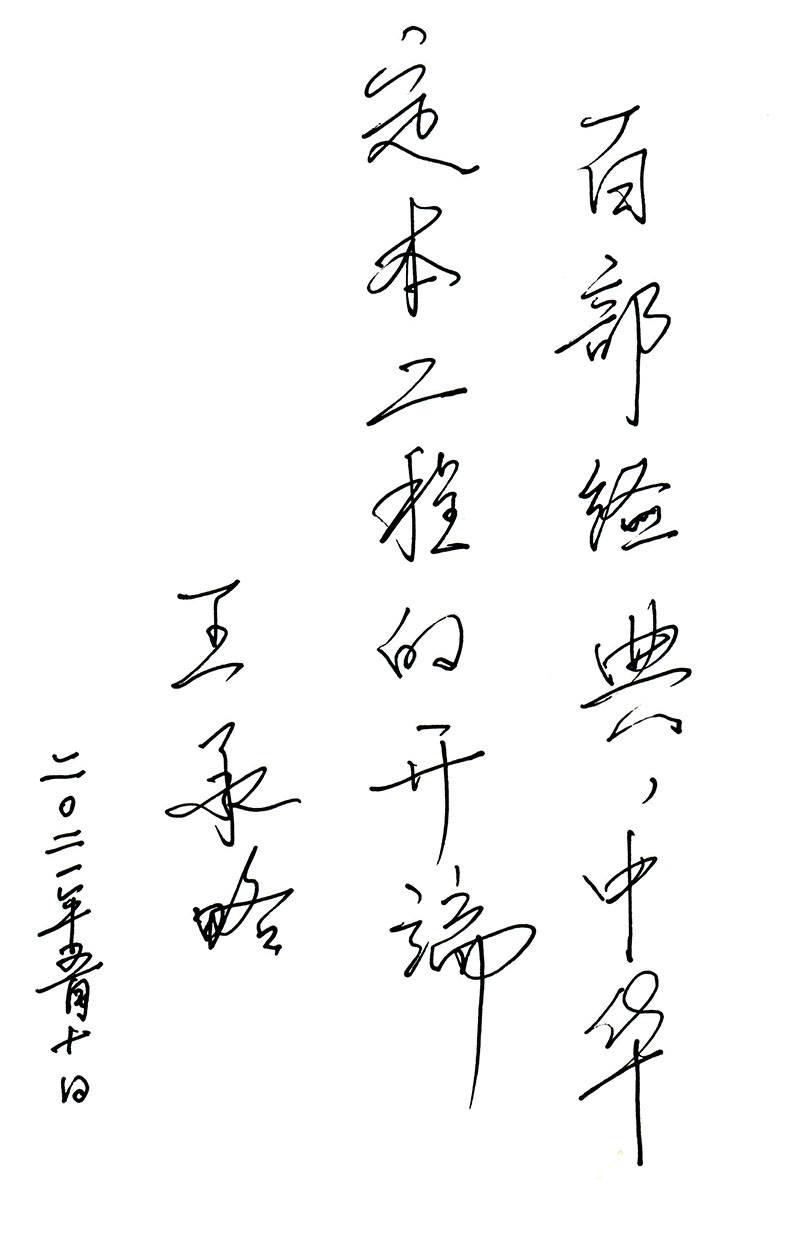 百部经典，中华
定本工程的开端
王承略
二〇二一年五月十日